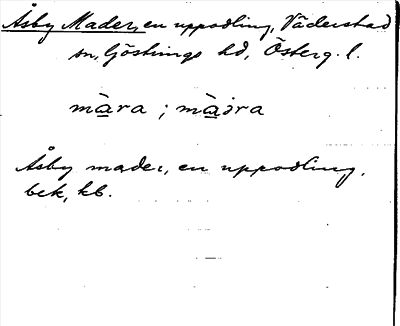 Åsby Mader, en uppodling, Väderstad
sn, Göstrings hd, Österg. l.
màra ; màdra
Åsby mader, en uppodling,
bek, kb.